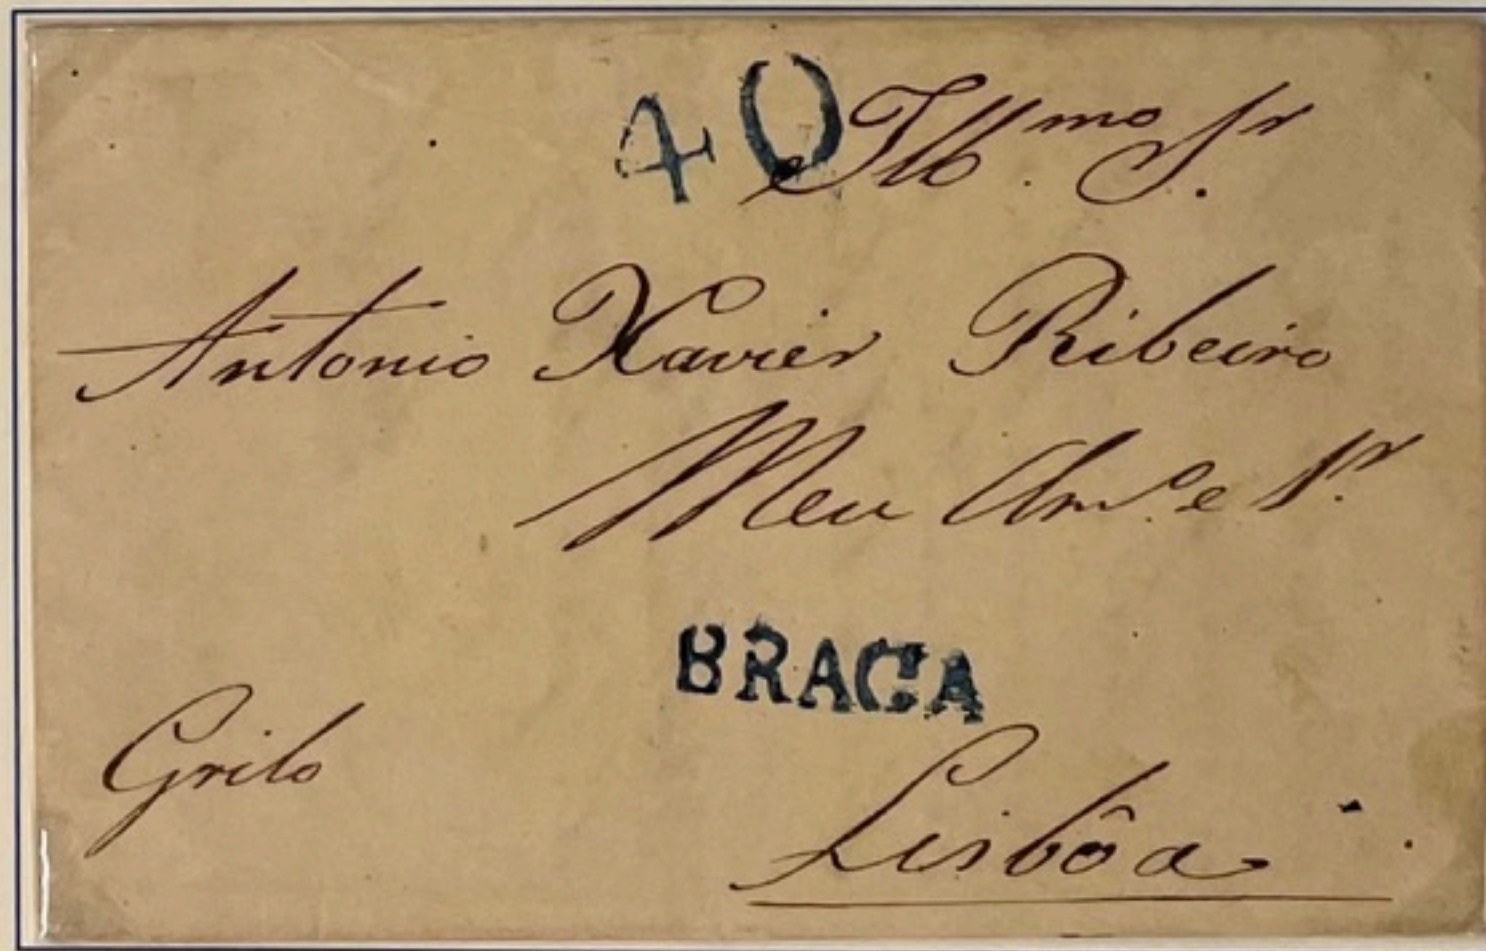 40
Illmo. Sr.
Antonio Xavier Ribeiro
Meu Amo. e Sr.
BRAGA
Grilo
Lisbôa